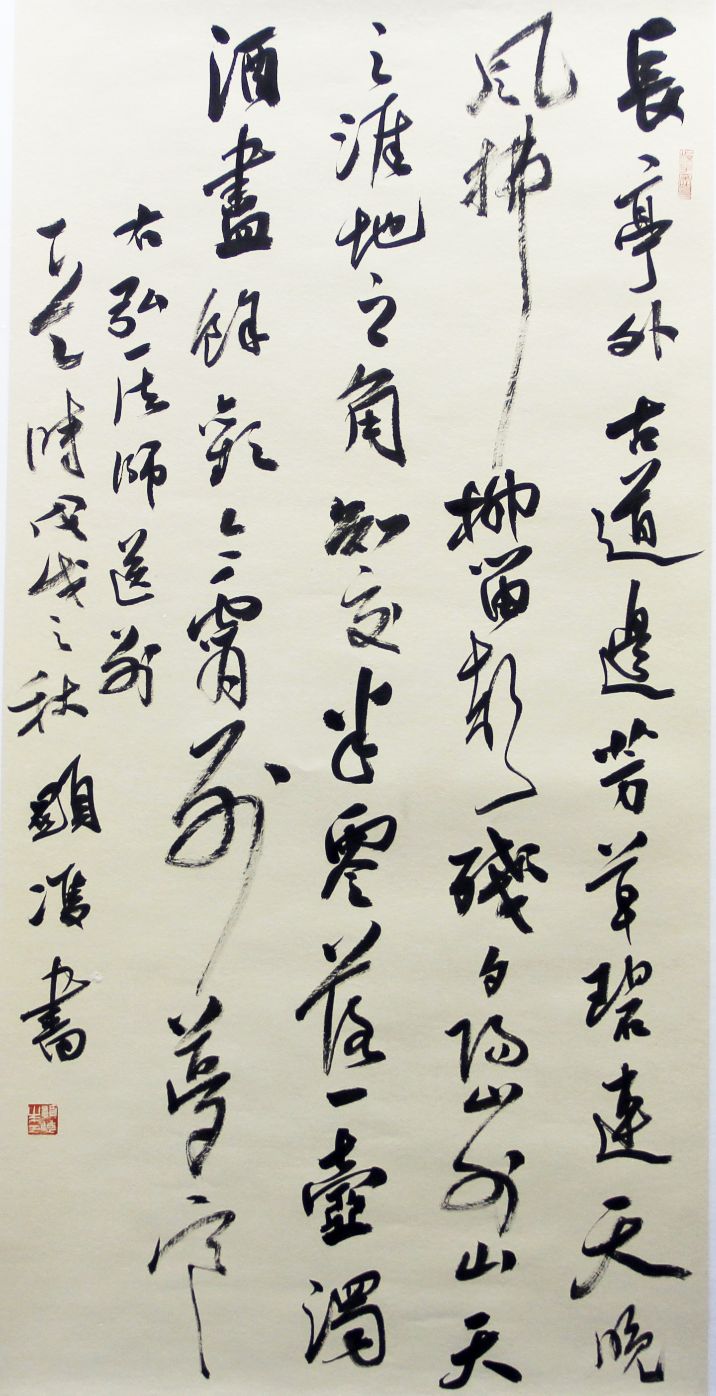 長亭外古道邊芳草碧連天晚
風拂柳笛聲殘夕陽山外山天
之涯地之角知交半零落一壺濁
酒盡餘歡今宵別夢寒
右弘一法師送別
時戊戌之秋顯馮書